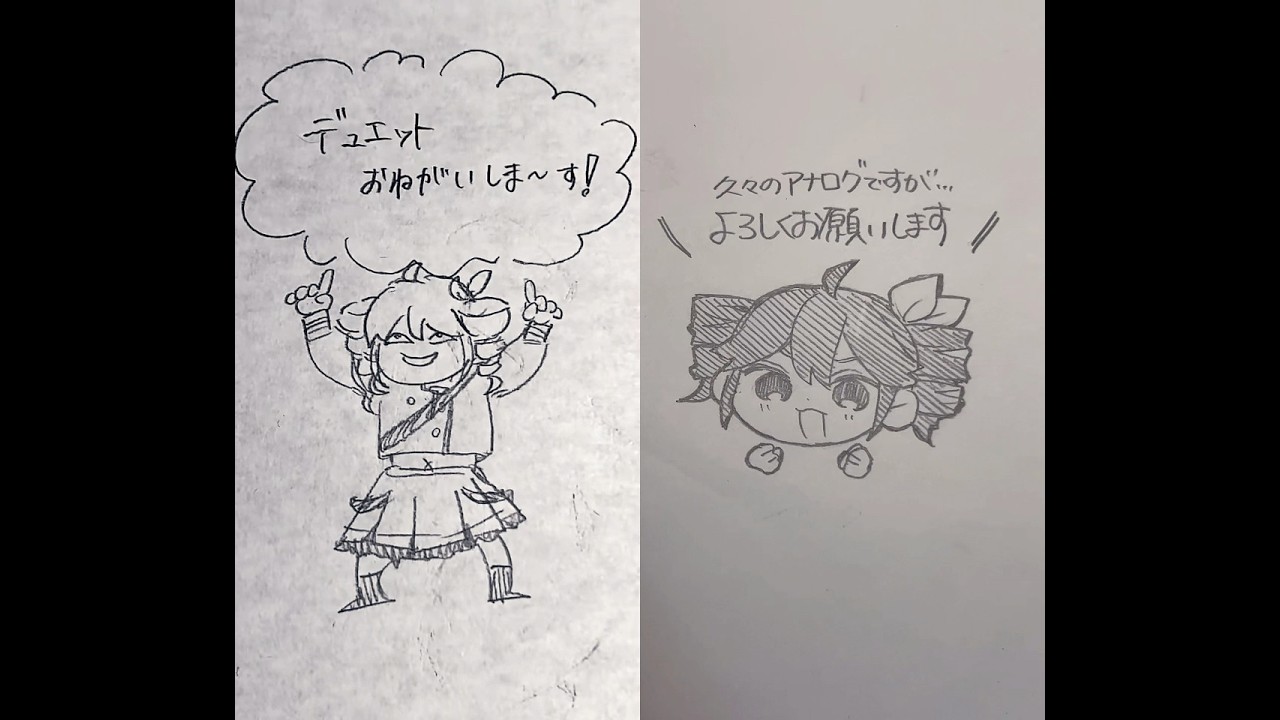 デュエット
おねがいしま~す!
久々のアナログですが…
よろしくお願いします